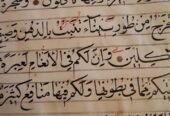 تَخْرُجُ مِنْ طُورِ سَيْنَاءَ تَنْبُتُ بِالدُّهْنِ وَصِ
كِلِينَ وَاِنَّ لَكُمْ فِي الْاَنْعَامِ لَعِبْرَ
مِمَّا فِي بُطُونِهَا وَلَكُمْ فِيهَا مَنَافِعُ كَثِيرَ